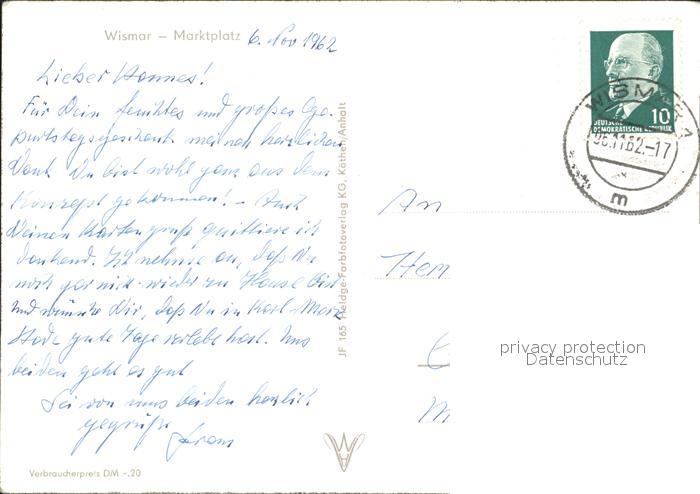 Wismar – Marktplatz 6. Nov 1962
Lieber Hannes!
Für Dein feuchtes und großes Ge-
burtstagsgeschenk meinen herzlichen
Dank. Du bist wohl ganz aus dem
Konzept gekommen! – Auch
Deinen Kartengruß quittiere ich
dankend. Ich nehme an, daß Du
noch gar nicht wieder zu Hause bist
und wünsche Dir, daß Du in Karl-Marx-
Stadt gute Tage verlebt hast. Uns
beiden geht es gut
Sei von uns beiden herzlich
gegrüßt
Verbraucherpreis DM -.20
JF 165 Fieldge-Farbfotoverlag KG, Köthen/Anhalt
DEUTSCHE
DEMOKRATISCHE REPUBLIK
10
WISMAR 1
06.11.62.-17
m
An
Her
privacy protection
Datenschutz